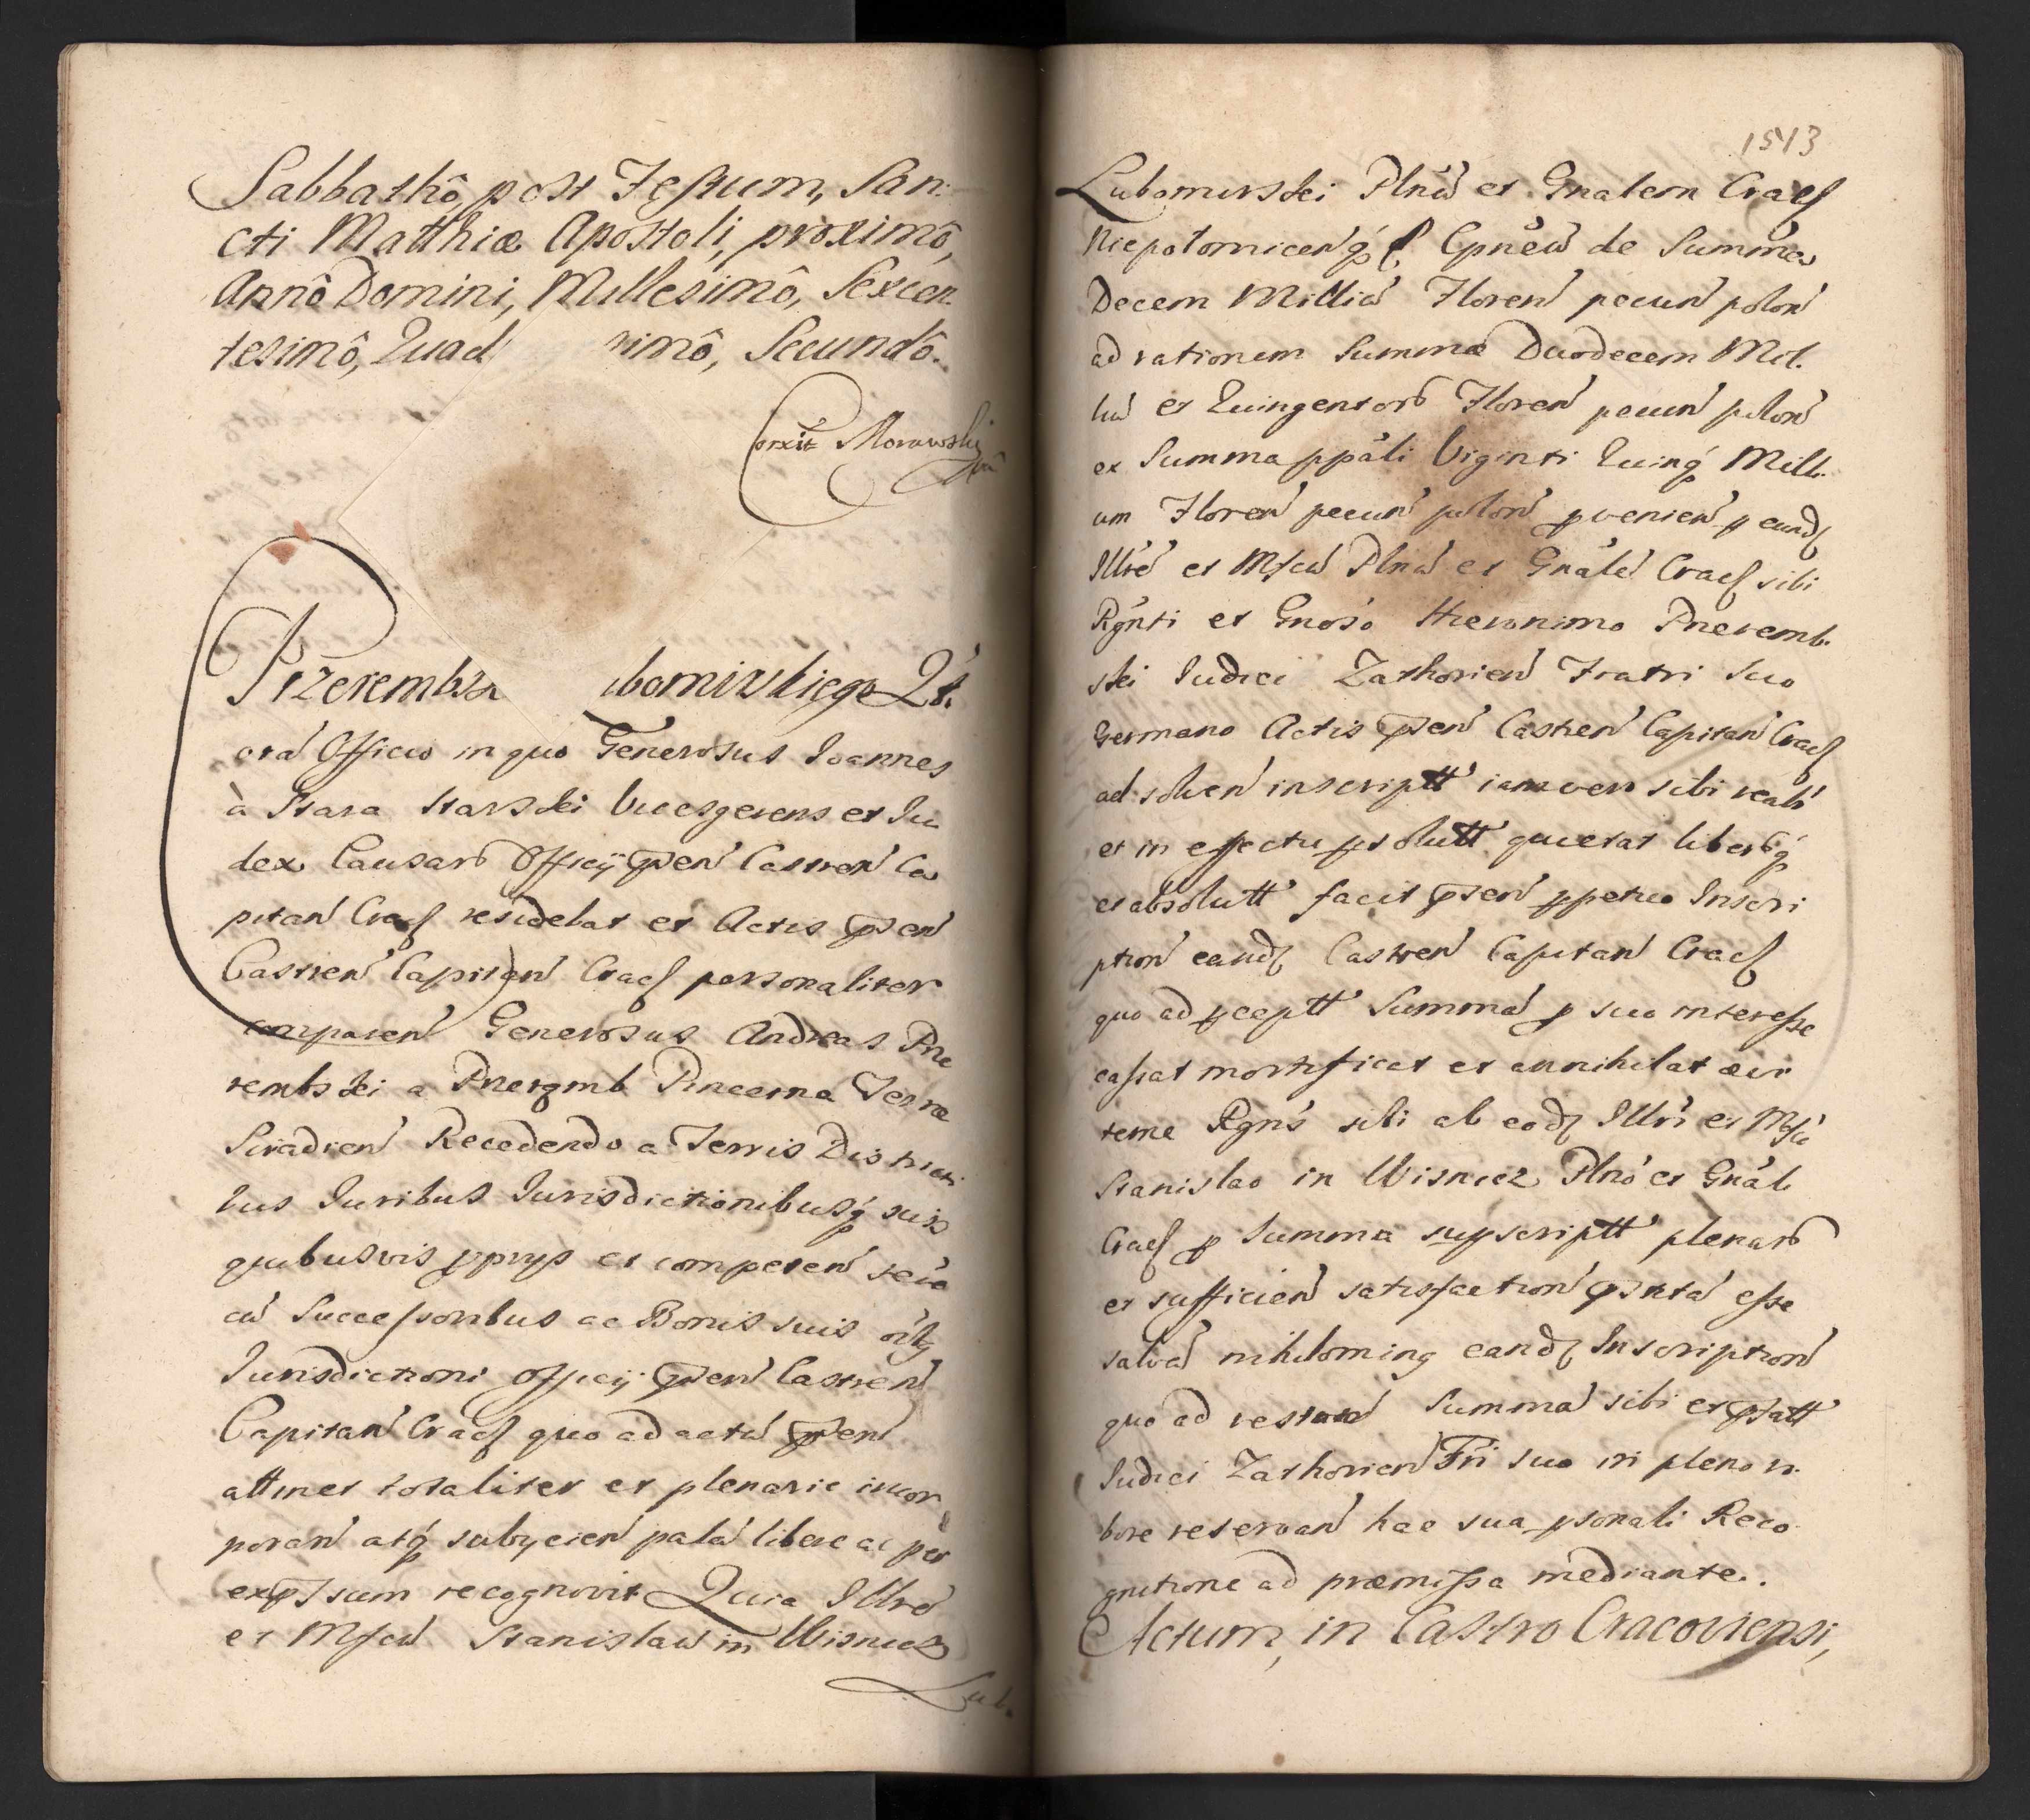 Sabbathô, post Festum, San:
cti Matthiæ Apostoli, proximô,
Annô Domini, Millesimô, Sexcen
tesimô, Quad imô, Secundô.
Morawski
Przerembsk ubomirskiego Qt.
ora Officio in quo Generosus Joannes
à Stara Starski Vicesgerens et Ju
dex Causar Officij pñen Castren Ca
pitan Crac residebat et Actis pñen
Castren Capitan Crac personaliter
comparen Generosus Andreas Prze
rembski a Przeremb Pincerna Terræ
Siradien Recedendo a Terris Districti
bus Juribus Jurisdictionibusq suis
quibusvis pprys et competen seq
cu Successoribus ac Bonis suis oib
Jurisdictioni Officij pñen Castren
Capitan Crac quo ad actu pñen
attinet totaliter et plenarie incor
poran atq subycien pala libere ac per
expssum recognovit Quia Illrē
et Mfcu Stanislau in Wisnicz
Lub.
1513
Lubomirski Plnū et Gnalem Crac
Niepolomicenq Cpnēū de Summa
Decem Millia Floren pecun polon
ad rationem Summæ Duodecem Mil.
liu et Quingentor Floren pecun polon
ex Summa ppāli Viginti Quinq Milli
um Floren pecun polon pvenien p eund
Illrē et Mfcu Plnū et Gnāle Crac sibi
Rgnti et Gnoso Hieronimo Przeremb.
ski Judici Zathorien Fratri suo
Germano Actis pñen Castren Capitan Crac
ad solven inscriptt iam vero sibi realr
et in effectu psolutt quietat liberq
et absolutt facit pñen ppetuo Inscri
ption eand Castren Capitan Crac
quo ad pceptt Summa p suo interesse
cassat mortificat et annihilat
teme Rgns sibi ab eod Illri et Mfco
Stanislao in Wisnicz Plnō et Gnāli
Crac p Summa supscriptt plenar
et sufficien satisfaction pstita esse
salva nihilominq eand Inscription
quo ad restan Summa sibi et pfatt
Judici Zathorien Fri suo in pleno ro
bore reservan hac sua psonali Reco
gnitione ad præmissa mediante.
Actum, in Castro Cracoviensi,